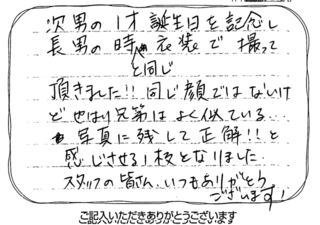 次男の1才誕生日を記念し
長男の時と同じ衣装で撮って
頂きました!!同じ顔ではないけ
ど やはり兄弟はよく似ている…
写真に残して正解!!と
感じさせる1枚となりました
スタッフの皆さん、いつもありがとう
ございます!
ご記入いただきありがとうございます